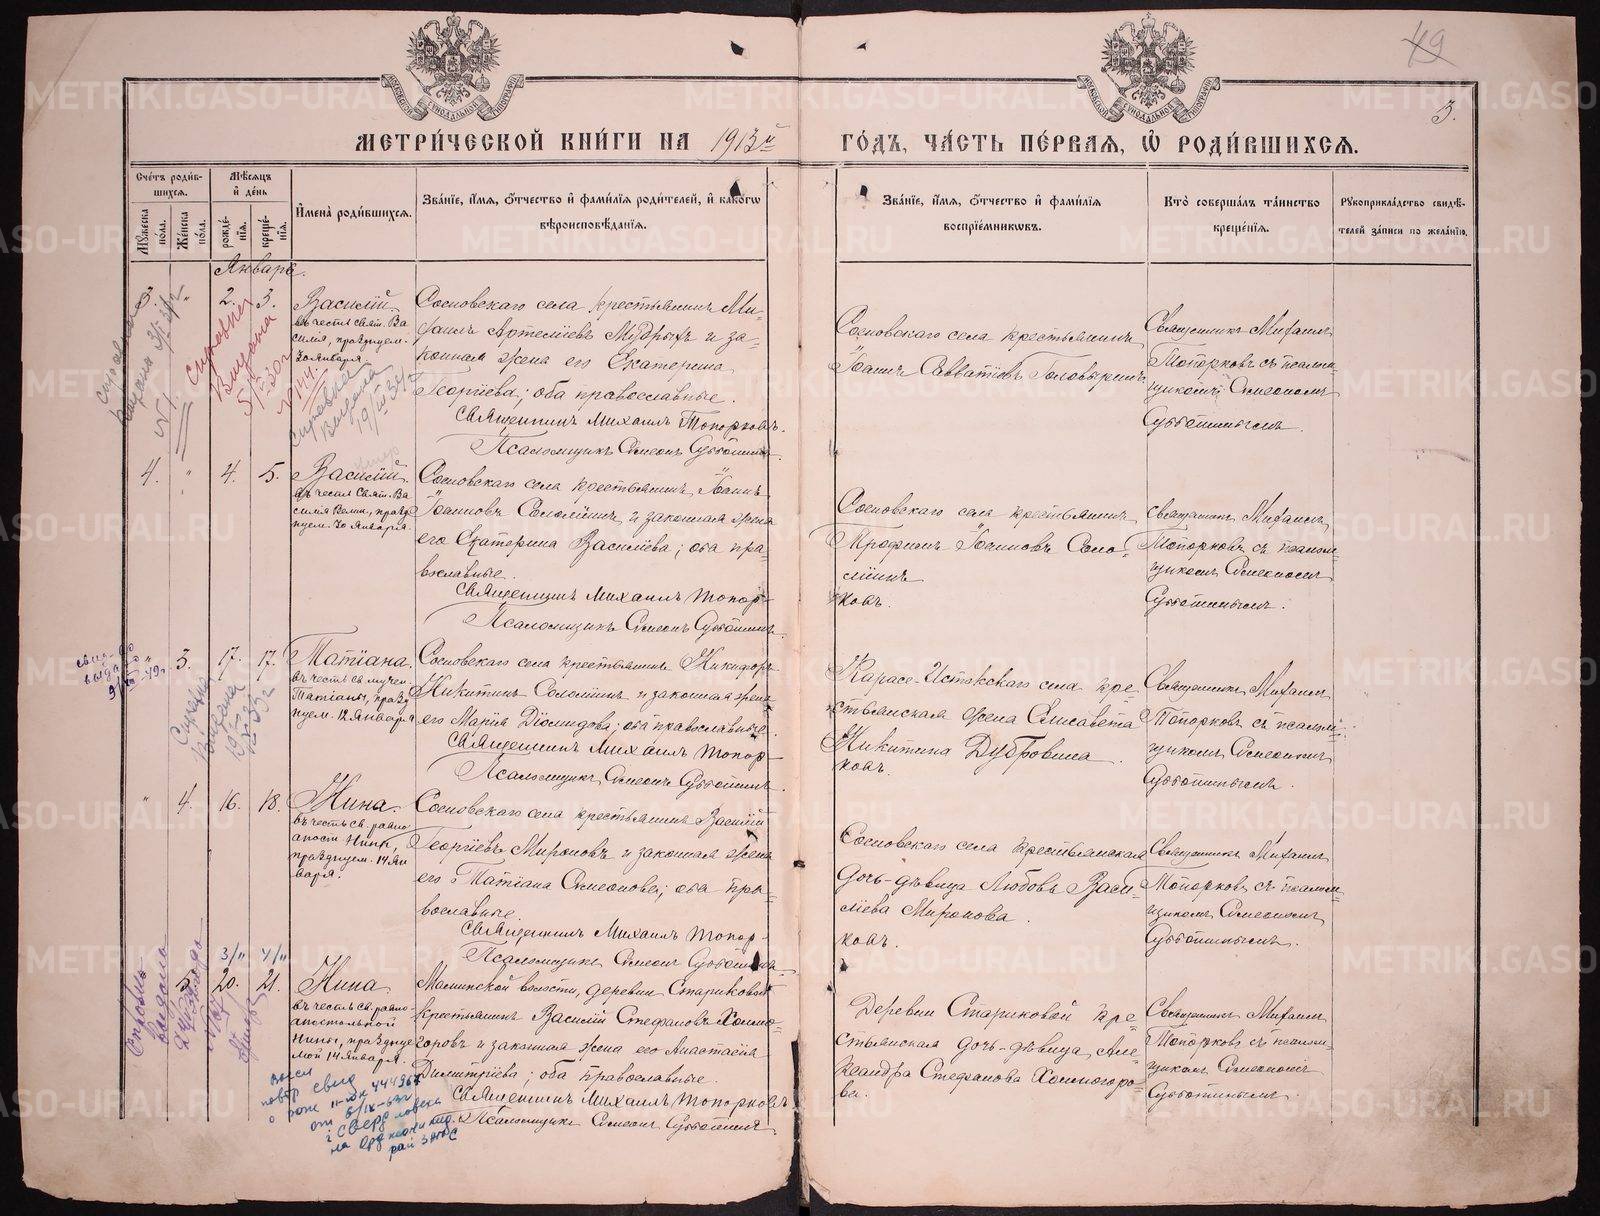 49
3.
МЕТРИ́ЧЕСКОЙ КНИ́ГИ НА 1913й ГО́ДЪ, ЧА́СТЬ ПЕ́РВАЯ, Ѿ РОДИ́ВШИХСЯ.
Сче́тъ роди́в-
шихся.
Мꙋжеска по́ла.
Же́нска по́ла.
Мѣ́сяцъ
и҆ де́нь
рожде́-
нїѧ.
креще́-
нїѧ.
И҆мена̀ роди́вшихся.
Зва́нїе, и҆́мѧ, ѻ҆́тчество и҆ фами́лїѧ роди́телей, и҆ како́гѡ
вѣроисповѣ́данїѧ.
Зва́нїе, и҆́мѧ, ѻ҆́тчество и҆ фами́лїѧ
воспрїе́мникѡвъ.
Кто̀ соверша́лъ та́инство
креще́нїѧ.
Рꙋкоприкла́дство свидѣ́-
телей за́писи по жела́нїю.
Январь.
3. " 2. 3. Василій
въ честь Свят. Ва-
силія, празднуем.
Января.
Сосновскаго села крестьянинъ Ми-
хаилъ Артеміевъ Мудрыхъ и за-
конная жена его Екатерина
Георгіева; оба православные.
Священникъ Михаилъ Топорковъ.
Псаломщикъ Симеонъ Субботинъ.
Сосновскаго села крестьянинъ
Іоаннъ Савватіевъ Головыринъ
Священникъ Михаилъ
Топорковъ съ псалом-
щикомъ Симеономъ
Субботинымъ.
4. " 4. 5. Василій
въ честь Свят. Ва-
силія Велик., празд-
нуем. Января.
Сосновскаго села крестьянинъ Іоаннъ
Іоанновъ Соломинъ и законная жена
его Екатерина Василіева; оба пра-
вославные.
Священникъ Михаилъ Топор-
ковъ.
Псаломщикъ Симеонъ Субботинъ.
Сосновскаго села крестьянинъ
Трофимъ Іоанновъ Соло-
минъ
Священникъ Михаилъ
Топорковъ съ псалом-
щикомъ Симеономъ
Субботинымъ.
" 3. 17. 17. Татіана.
въ честь св. мучен.
Татіаны, празд-
нуем. 12 Января
Сосновскаго села крестьянинъ Никифоръ
Никитинъ Соломинъ и законная жена
его Марія Діомидова; оба православные.
Священникъ Михаилъ Топор-
ковъ.
Псаломщикъ Симеонъ Субботинъ.
Карасе-Истокскаго села кре-
стьянская жена Елисавета
Никитина Дубровина.
Священникъ Михаилъ
Топорковъ съ псалом-
щикомъ Симеономъ
Субботинымъ.
" 4. 16. 18. Нина.
въ честь св. равно-
апост Нины,
празднуем. 14 Ян-
варя.
Сосновскаго села крестьянинъ Василій
Георгіевъ Мироновъ и законная жена
его Татіана Симеонова; оба пра-
вославные.
Священникъ Михаилъ Топор-
ковъ.
Псаломщикъ Симеонъ Субботинъ.
Сосновскаго села крестьянская
дочь-дѣвица Любовь Васи-
ліева Миронова.
Священникъ Михаилъ
Топорковъ съ псалом-
щикомъ Симеономъ
Субботинымъ.
3/II 4/II
5. 20. 21. Нина.
въ честь св. равно-
апостольной
Нины, празднуе-
мой 14 Января.
Маминской волости, деревни Стариковой
крестьянинъ Василій Стефановъ Холмо-
горовъ и законная жена его Анастасія
Димитріева; оба православные.
Священникъ Михаилъ Топорковъ
Псаломщикъ Симеонъ Субботинъ.
Деревни Стариковой кре-
стьянская дочь-дѣвица Але-
ксандра Стефанова Холмогоро-
ва.
Священникъ Михаилъ
Топорковъ съ псалом-
щикомъ Симеономъ
Субботинымъ.
Справка
Выдана
Справка
выдана
19/III 34
Справка
выдана
повтор свид
о рож II-юк 444967
г Свердловска
METRIKI.GASO-URAL.RU